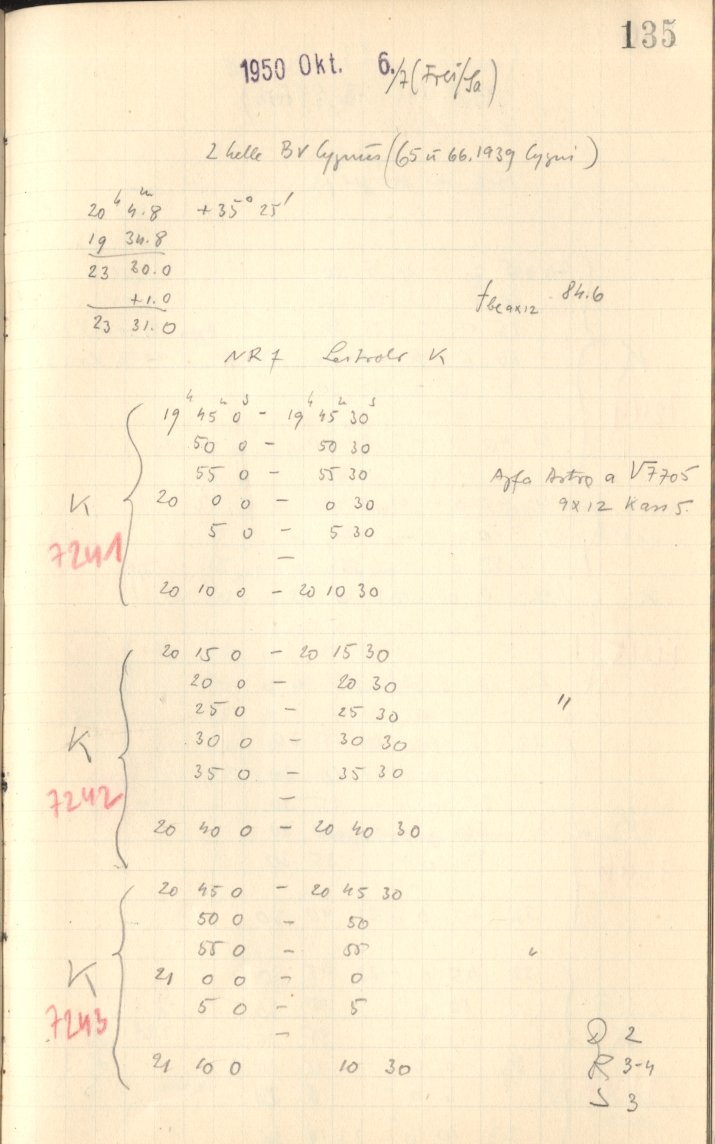 135
1950 Okt. 6./7 (Frei/Sa)
2 helle BV Cygnus (65 u 66.1939 Cygni)
20ʰ 4ᵐ.8 +35° 25'
19 34.8
23 30.0
+1.0
23 31.0
f 9x12 84.6
NR 7 K
19ʰ 45ᵐ 0ˢ - 19ʰ 45ᵐ 30ˢ
50 0 - 50 30
55 0 - 55 30
Agfa Astro a V7705
K 20 0 0 - 0 30
9x12 Kass 5.
5 0 - 5 30
7241
-
20 10 0 - 20 10 30
20 15 0 - 20 15 30
20 0 - 20 30
25 0 - 25 30 "
K 30 0 - 30 30
35 0 - 35 30
7242
-
20 40 0 - 20 40 30
20 45 0 - 20 45 30
50 0 - 50
55 0 - 55 "
K 21 0 0 - 0
5 0 - 5
7243
-
D 2
21 10 0 10 30
R 3-4
S 3